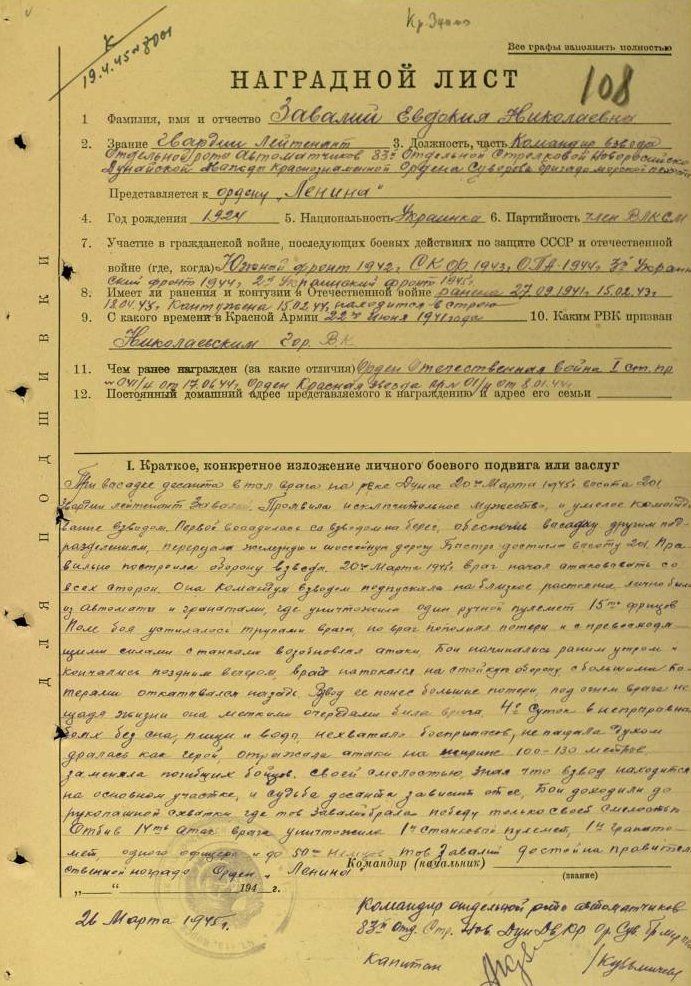 Кр Знамя
К
19.4.45
Все графы заполнять полностью
НАГРАДНОЙ ЛИСТ
108
1 Фамилия, имя и отчество Завалий Евдокия Николаевна
2. Звание Гвардии Лейтенант 3. Должность, часть Командир взвода
Отдельной роты Автоматчиков 83й Отдельной Стрелковой Новороссийско
Дунайской Дважды Краснознаменной Ордена Суворова бригады морской
Представляется к ордену „Ленина"
4. Год рождения 1924 5. Национальность Украинка 6. Партийность член ВЛКСМ
7. Участие в гражданской войне, последующих боевых действиях по защите СССР и отечественной
войне (где, когда) Южный фронт 1942г СКФ 1943г ОПА 1944г 3й Украин
ский фронт 1944г 2й Украинский фронт 1945г.
8. Имеет ли ранения и контузии в Отечественной войне ранена 27.09.1941г. 15.02.43г
Контужена 15.02.44, находится в строю
9. С какого времени в Красной Армии 22го июня 1941 года 10. Каким РВК призван
Николаевским Гор. ВК
11. Чем ранее награжден (за какие отличия) Орден Отечественная война I ст. пр
от 17.06.44г, Орден Красная звезда пр № 01/н от 8.01.44г
12. Постоянный домашний адрес представляемого к награждению и адрес его семьи
ДЛЯ ПОДШИВКИ
I. Краткое, конкретное изложение личного боевого подвига или заслуг
При высадке десанта в тыл врага на реке Дунае 20го Марта 1945г высота 201
Гвардии лейтенант Завалий. Проявила исключительное мужество, и умелое командо
вание взводом. Первой высадилась со взводом на берег, обеспечив высадку другим под
разделениям, перерезала железную и шоссейную дорогу быстро достигла высоту 201. Пра
вильно построила оборону взвода. 20го Марта 1945г враг начал атаковать со
всех сторон. Она командуя взводом подпускала на близкое растояние, лично била
из автомата и гранатами, где уничтожила один ручной пулемет 15ть фрицов
Поле боя устилалось трупами врага, но враг пополнял потери и с превосходя
щими силами с танками возобновлял атаки. Бои начинались ранним утром и
кончались поздним вечером, враг натыкался на стойкую оборону с большими по
терями откатывался назад. Взвод ее понес большие потери, под огнем врага не
щадя жизни она меткими очередями била врага. 4е суток в непрерывных
боях без сна, пищи и воды. нехватало боеприпасов, не падала духом
дралась как герой, отражала атаки на 100-130 метров
заменяла погибших бойцов. своей смелостью, зная что взвод находится
на основном участке, и судьба десанта зависит от ее. Бои доходили до
рукопашной схватки, где тов Завалий брала победу только своей смелостью
Отбив 14ть атак врага уничтожила 1н станковый пулемет, 1н гранато
мет, одного офицера и до 50ти немцев. Тов Завалий достойна правитель
Командир (начальник)
(звание)
ственной награды Орден „Ленина"
„ " 194 г.
26 Марта 1945г.
Командир отдельной роты автоматчиков
83й Отд. Стр. Нов. Дун Дв. Кр Ор. Сув. Бр.
Капитан /Кузьмичев